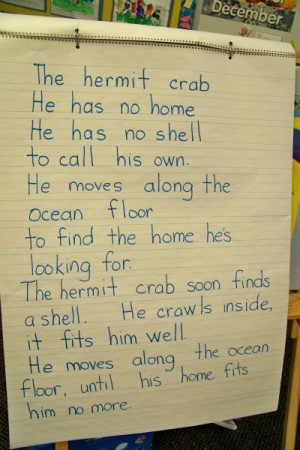 December
The hermit crab
He has no home
He has no shell
to call his own.
He moves along the
ocean floor
to find the home he's
looking for.
The hermit crab soon finds
a shell. He crawls inside,
it fits him well.
He moves along the ocean
floor, until his home fits
him no more.